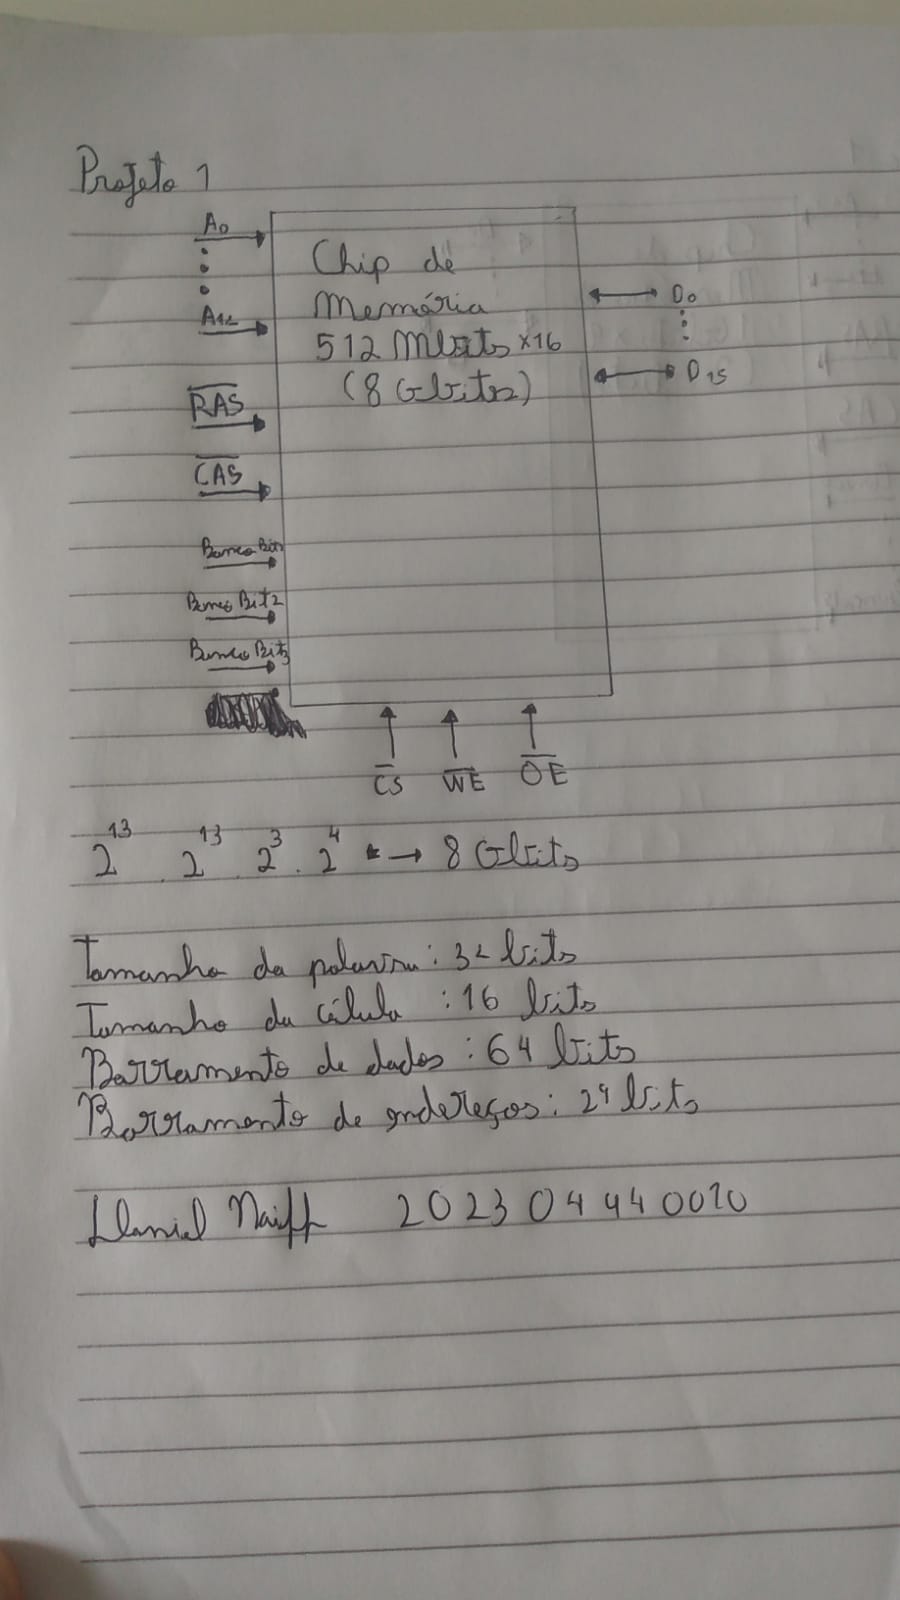 Projeto 1
A0
A12
RAS
CAS
Banco Bit2
Banco Bit3
Chip de
Memória
512 Mbits x16
(8 Gbits)
D0
D15
CS WE OE
2^13 . 2^13 . 2^3 . 2^4 → 8 Gbits
Tamanho da palavra: 32 bits
Tamanho da célula: 16 bits
Barramento de dados: 64 bits
Barramento de endereços: 29 bits
Naiff 202304440010